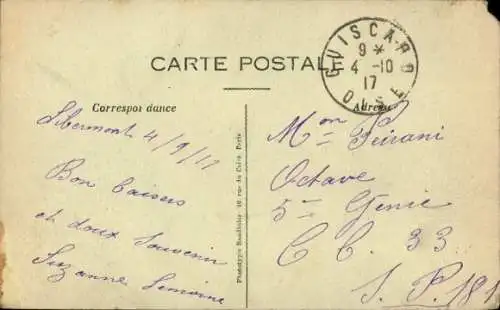 CARTE POSTALE
GUISCARD
9 *
4 -10
17
OISE
Correspondance
Adresse
Libermont 4/9/17
Bon baisers
et doux souvenir
Suzanne Lemoine
Mon Peirani
Octave
5me Genie
C C. 33
S. P. 181
Phototypie Baudinière - rue du Caire, Paris